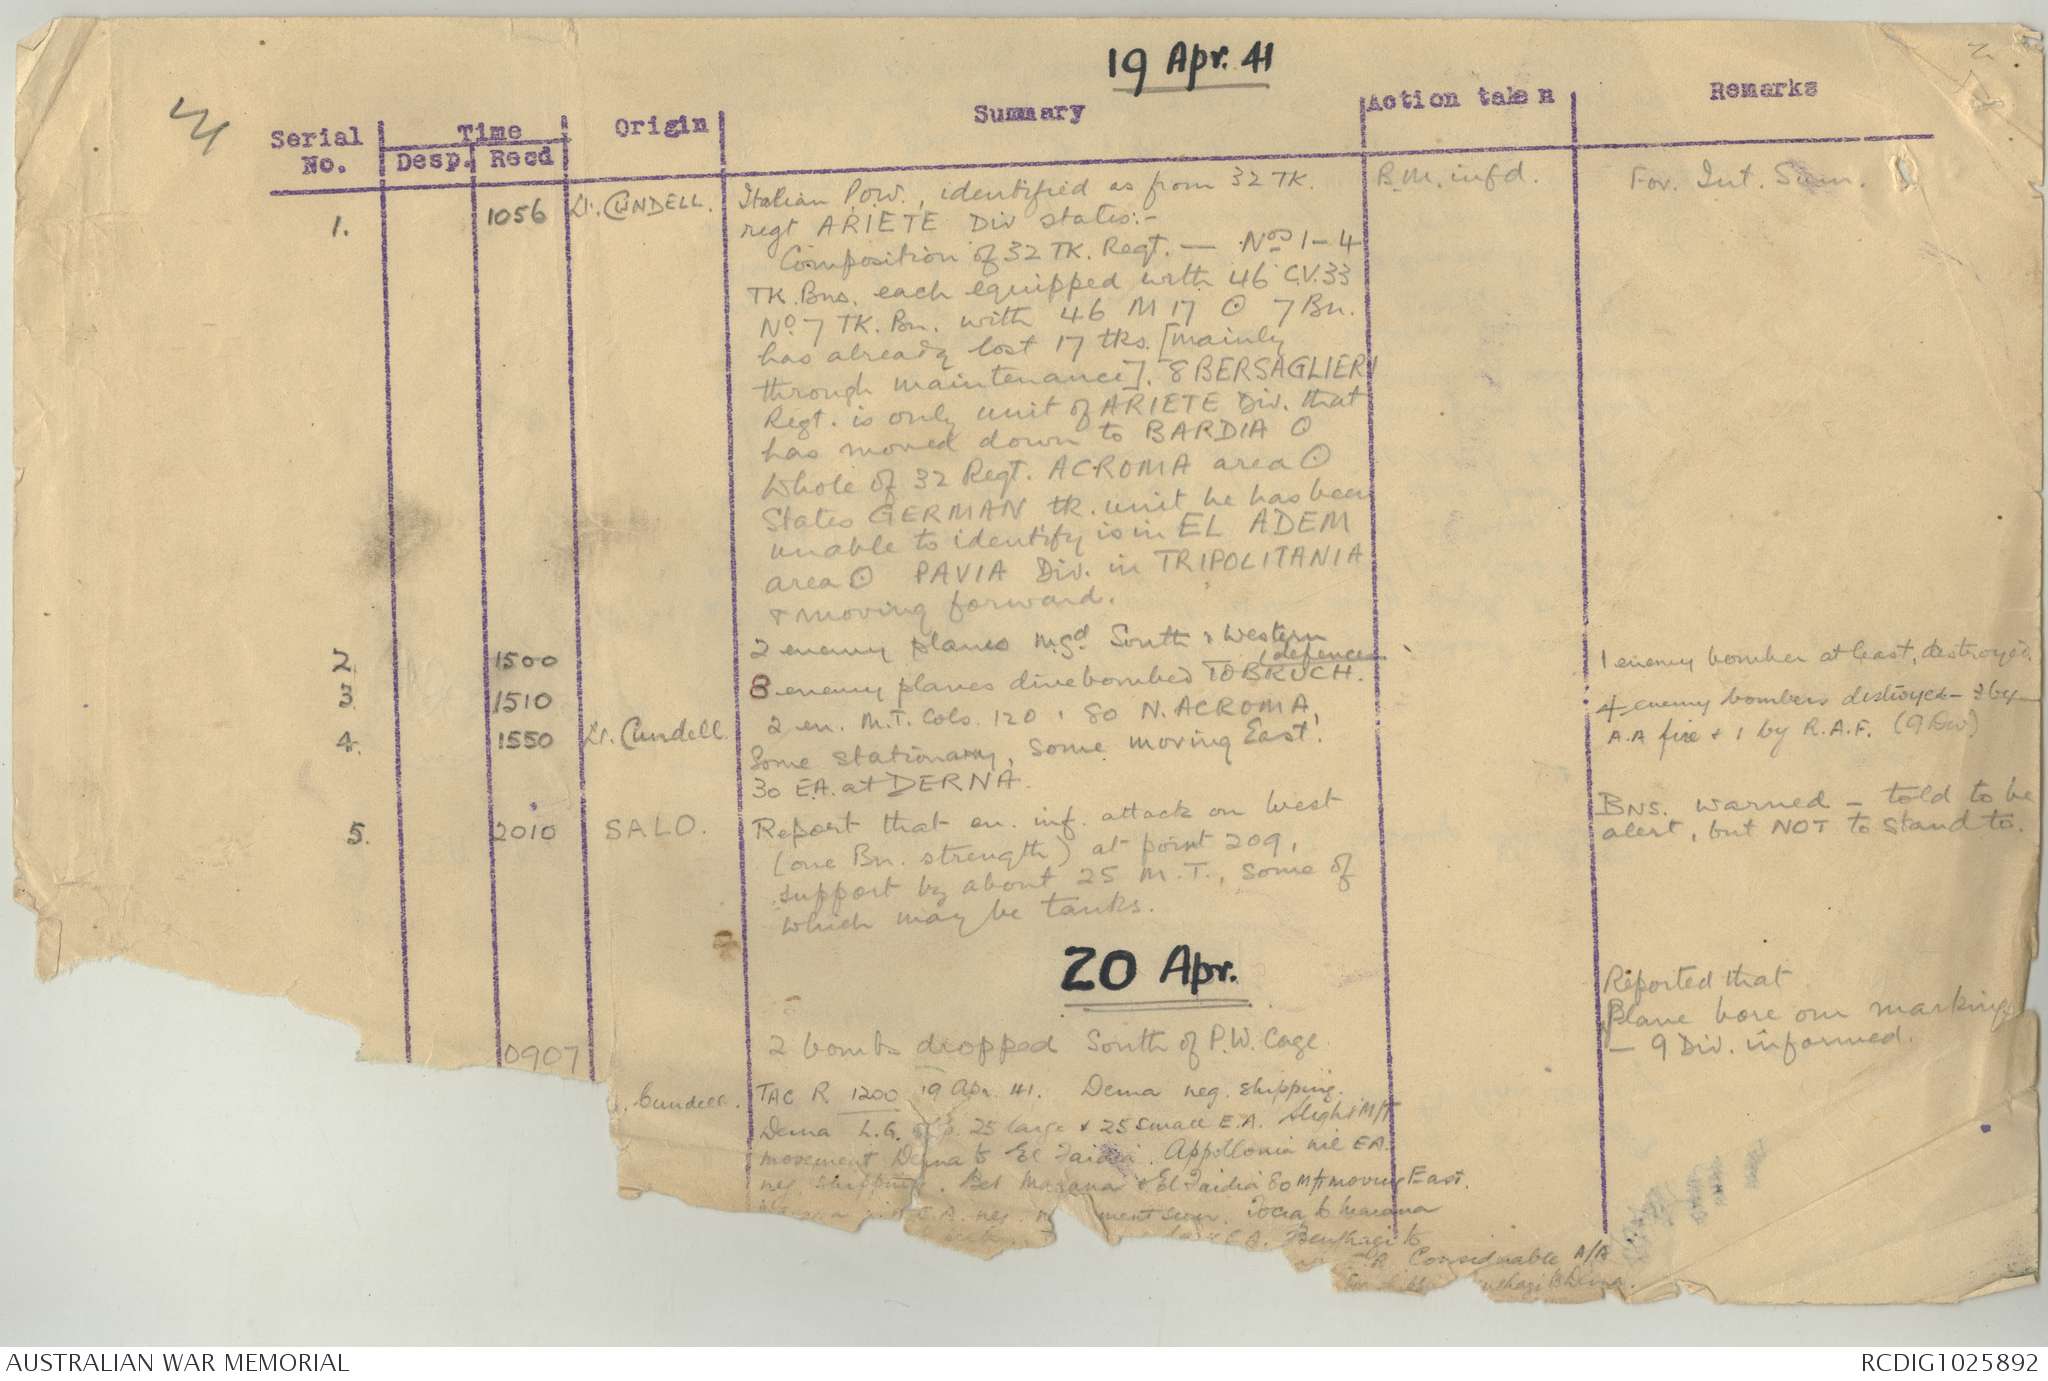 19 Apr. 41
Serial No.
Time
Desp. Recd
Origin
Summary
Action taken
Remarks
1.
1056
Lt. CUNDELL.
Italian P.o.W., identified as from 32 TK.
regt ARIETE Div states:-
Composition of 32 TK. Regt. — Nos 1-4
TK. Bns. each equipped with 46 C.V. 33
No 7 TK. Bn. with 46 M 17 ⊙ 7 Bn.
has already lost 17 tks. [mainly
through maintenance]. 8 BERSAGLIERI
Regt. is only unit of ARIETE Div. that
has moved down to BARDIA ⊙
Whole of 32 Regt. ACROMA area ⊙
States GERMAN tk. unit he has been
unable to identify is in EL ADEM
area ⊙ PAVIA Div. in TRIPOLITANIA
& moving forward.
B.M. infd.
For. Int. Sum.
2.
1500
2 enemy planes mgd South & Western
defences
1 enemy bomber at least, destroyed.
3.
1510
8 enemy planes divebombed TOBRUCH.
4 enemy bombers destroyed - 3 by
A.A fire & 1 by R.A.F. (9 Div)
4.
1550
Lt. Cundell
2 en. M.T. Cols. 120 & 80 N. ACROMA,
Some stationary, some moving East.
30 E.A. at DERNA.
5.
2010
SALO.
Report that en. inf. attack on West
(one Bn. strength) at point 209,
support by about 25 M.T., some of
which may be tanks.
BNS. warned - told to be
alert, but NOT to stand to.
20 Apr.
0907
2 bombs dropped South of P.W. Cage
Reported that
Plane bore our markings
- 9 Div. informed.
Cundell.
TAC R 1200 19 Apr. 41. Derna neg. shipping.
Derna L.G. 25 large & 25 small E.A. Slight M/T
movement Derna to El Faidia. Appollonia nil EA.
neg shipping. Bet Marana & El Faidia 80 M/T moving East.
E.A. neg. ment seen. Tocra to Marana
E.A. Benghazi to
Considerable A/A
Derna.
AUSTRALIAN WAR MEMORIAL
RCDIG1025892